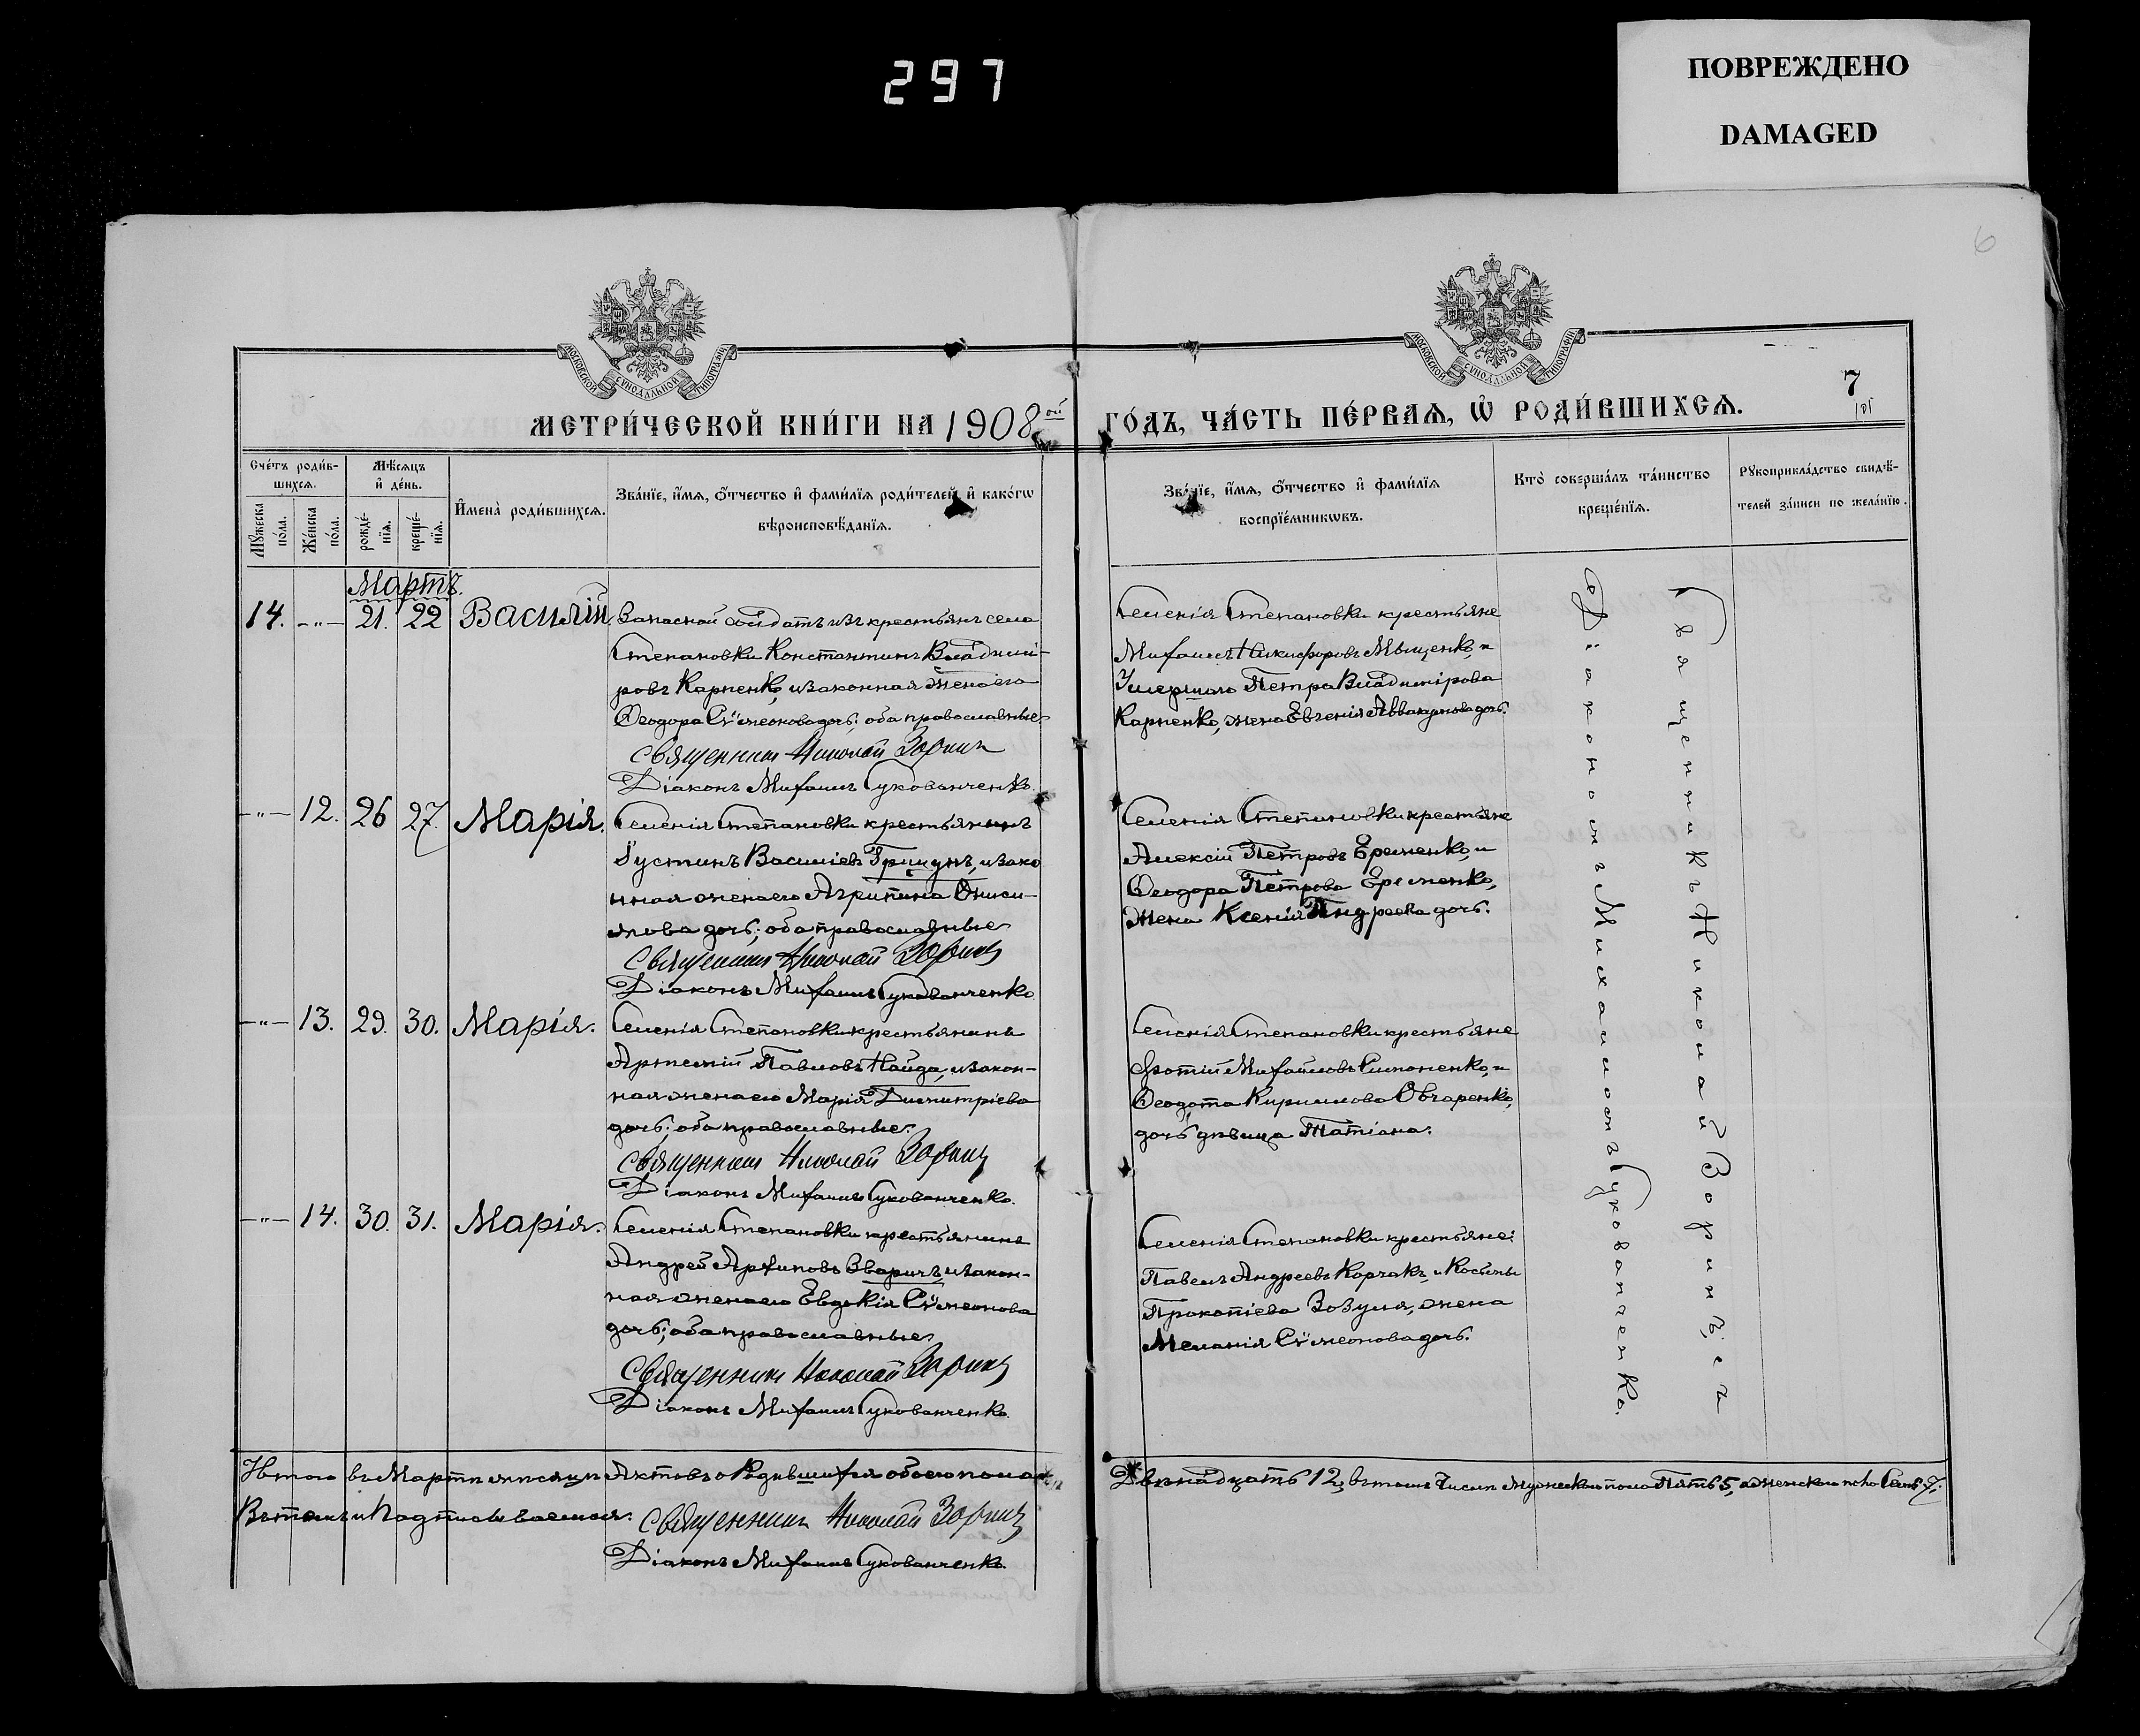 297
ПОВРЕЖДЕНО
DAMAGED
6
МОСКОВСКОЙ СУНОДАЛЬНОЙ ТИПОГРАФІИ
МОСКОВСКОЙ СУНОДАЛЬНОЙ ТИПОГРАФІИ
7
101
МЕТРИ́ЧЕСКОЙ КНИ́ГИ НА 1908ой ГО́ДЪ, ЧА́СТЬ ПЕ́РВАѦ, Ѡ҆ РОДИ́ВШИХСѦ.
Сче́тъ роди́в-
шихсѧ.
Мꙋжеска по́ла.
Же́нска по́ла.
Мѣ́сѧцъ
и҆ де́нь.
рожде́-
нїѧ.
креще́-
нїѧ.
И҆мена̀ роди́вшихсѧ.
Зва́нїе, и҆́мѧ, ѻ҆́тчество и҆ фами́лїѧ роди́телей, и҆ како́гѡ
вѣроисповѣ́данїѧ.
Зва́нїе, и҆́мѧ, ѻ҆́тчество и҆ фами́лїѧ
воспрїе́мникѡвъ.
Кто̀ соверша́лъ та́инство
креще́нїѧ.
Рꙋкоприкла́дство свидѣ́-
телей за́писи по жела́нїю.
Мартъ.
14. -"- 21. 22 Василій.
Запасной солдатъ изъ крестьянъ села
Степановки Константинъ Владимі-
ровъ Карпенко, и законная жена его
Ѳеодора Сѵмеонова дочь; оба православные
Священникъ Николай Зоринъ
Діаконъ Михаилъ Сукованченко.
Селенія Степановки крестьяне
Михаилъ Никифоровъ Мыщенко, и
Умершаго Петра Владимірова
Карпенко, жена Евгенія Аввакумова дочь.
-"- 12. 26 27. Марія.
Селенія Степановки крестьянинъ
Іустинъ Василіевъ Грицунъ, и зако
нная жена его Агрипина Ониси-
мова дочь; оба православные
Священникъ Николай Зоринъ
Діаконъ Михаилъ Сукованченко.
Селенія Степановки крестьяне
Алексій Петровъ Еременко, и
Ѳеодора Петрова Еременко,
жена Ксенія Андреева дочь.
-"- 13. 29. 30. Марія.
Селенія Степановки крестьянинъ
Артемій Павловъ Найда, и закон-
ная жена его Марія Димитріева
дочь; оба православные.
Священникъ Николай Зоринъ
Діаконъ Михаилъ Сукованченко.
Селенія Степановки крестьяне
Фотій Михайловъ Симоненко, и
Ѳеодота Кириллова Овчаренко,
дочь дѣвица Татіана.
-"- 14. 30. 31. Марія.
Селенія Степановки крестьянинъ
Андрей Архиповъ Зваричъ, и закон-
ная жена его Евдокія Сѵмеонова
дочь; оба православные.
Священникъ Николай Зоринъ
Діаконъ Михаилъ Сукованченко.
Селенія Степановки крестьяне:
Павелъ Андреевъ Корчакъ, и Косьмы
Прокопіева Зозуля, жена
Меланія Сѵмеонова дочь.
Священникъ Николай Зоринъ, съ
Діакономъ Михаиломъ Сукованченко.
Итого въ Мартѣ мѣсяцѣ Актовъ о Родившихся обоего пола
Двѣнадцать 12, въ томъ числѣ мужескаго пола Пять 5, а женскаго пола Семь 7.
Въ томъ и Подписываемся. Священникъ Николай Зоринъ
Діаконъ Михаилъ Сукованченко.